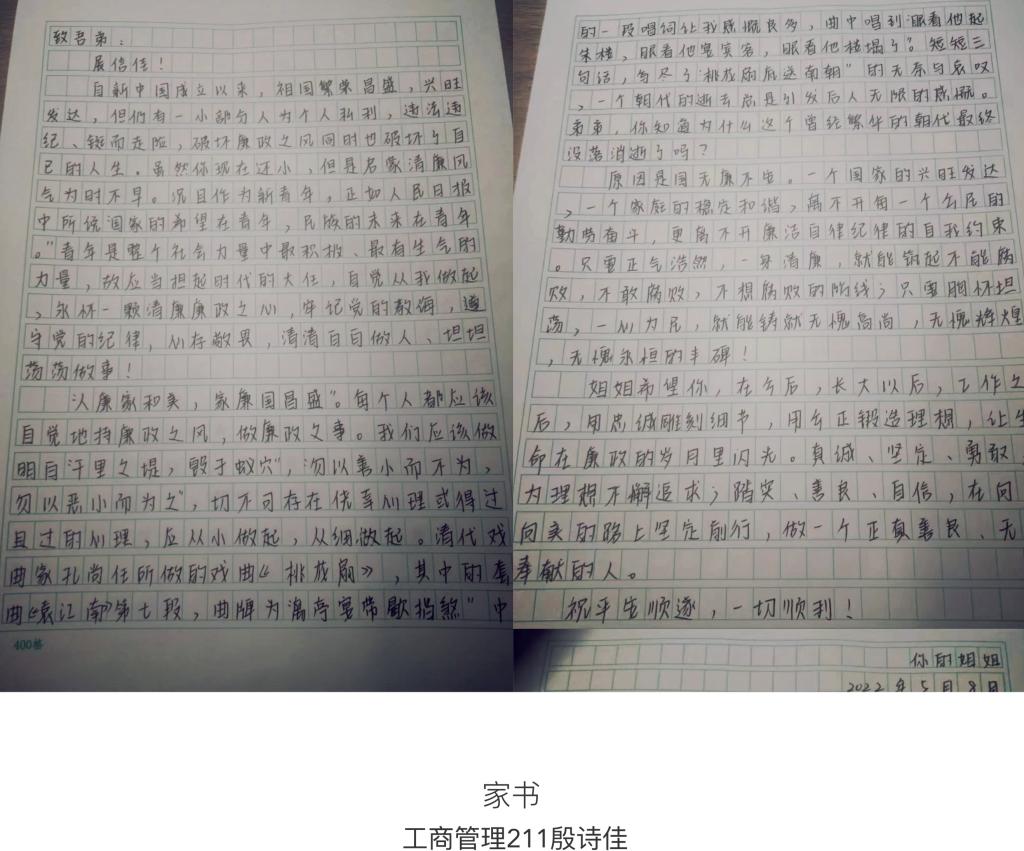 致吾弟：
展信佳！
自新中国成立以来，祖国繁荣昌盛，兴旺
发达，但仍有一小部分人为个人私利，违法违
纪、铤而走险，破坏廉政之风同时也破坏了自
己的人生。虽然你现在还小，但是名家清廉风
气为时不早。况且作为新青年，正如人民日报
中所统国家的希望在青年，民族的未来在青年
。"青年是整个社会力量中最积极、最有生气的
力量，故应当担起时代的大任，自觉从我做起
，永怀一颗清廉廉政之心，牢记党的教诲，遵
守党的纪律，心存敬畏，清清白白做人、坦坦
荡荡做事！
"人廉家和美，家廉国昌盛"。每个人都应该
自觉地持廉政之风，做廉政文事。我们应该做
明白汗里之堤，毁于蚁穴"，"勿以善小而不为，
勿以恶小而为之"，切不可存在侥幸心理或得过
且过的心理，应从小做起，从细做起。清代戏
曲家孔尚任所做的戏曲《桃花扇》，其中的套
曲《哀江南》第七段，曲牌为离亭宴带歇指煞"中
400格
的一段唱词让我感慨良多，曲中唱到眼看他起
朱楼，眼看他宴宾客，眼看他楼塌了？短短三
句话，写尽了"桃花扇底送南朝"的无奈与哀叹
，一个朝代的逝去总是引发后人无限的感慨。
弟弟，你知道为什么这个曾经繁华的朝代最终
没落消逝了吗？
原因是国无廉不安。一个国家的兴旺发达
，一个家庭的稳定和谐，离不开每一个公民的
勤劳奋斗，更离不开廉洁自律纪律的自我约束
。只要正气浩然，一身清廉，就能筑起不能腐
败，不敢腐败，不想腐败的防线；只要胸怀坦
荡，一心为民，就能铸就无愧高尚，无愧辉煌
，无愧永恒的丰碑！
姐姐希望你，在今后，长大以后，工作之
后，用忠诚雕刻细节，用公正锻造理想，让生
命在廉政的岁月里闪光。真诚、坚定、勇敢，
为理想不懈追求；踏实、善良、自信，在向
向美的路上坚定前行，做一个正直善良、无
奉献的人。
祝平生顺遂，一切顺利！
你的姐姐
2022年5月8日
家书
工商管理211殷诗佳